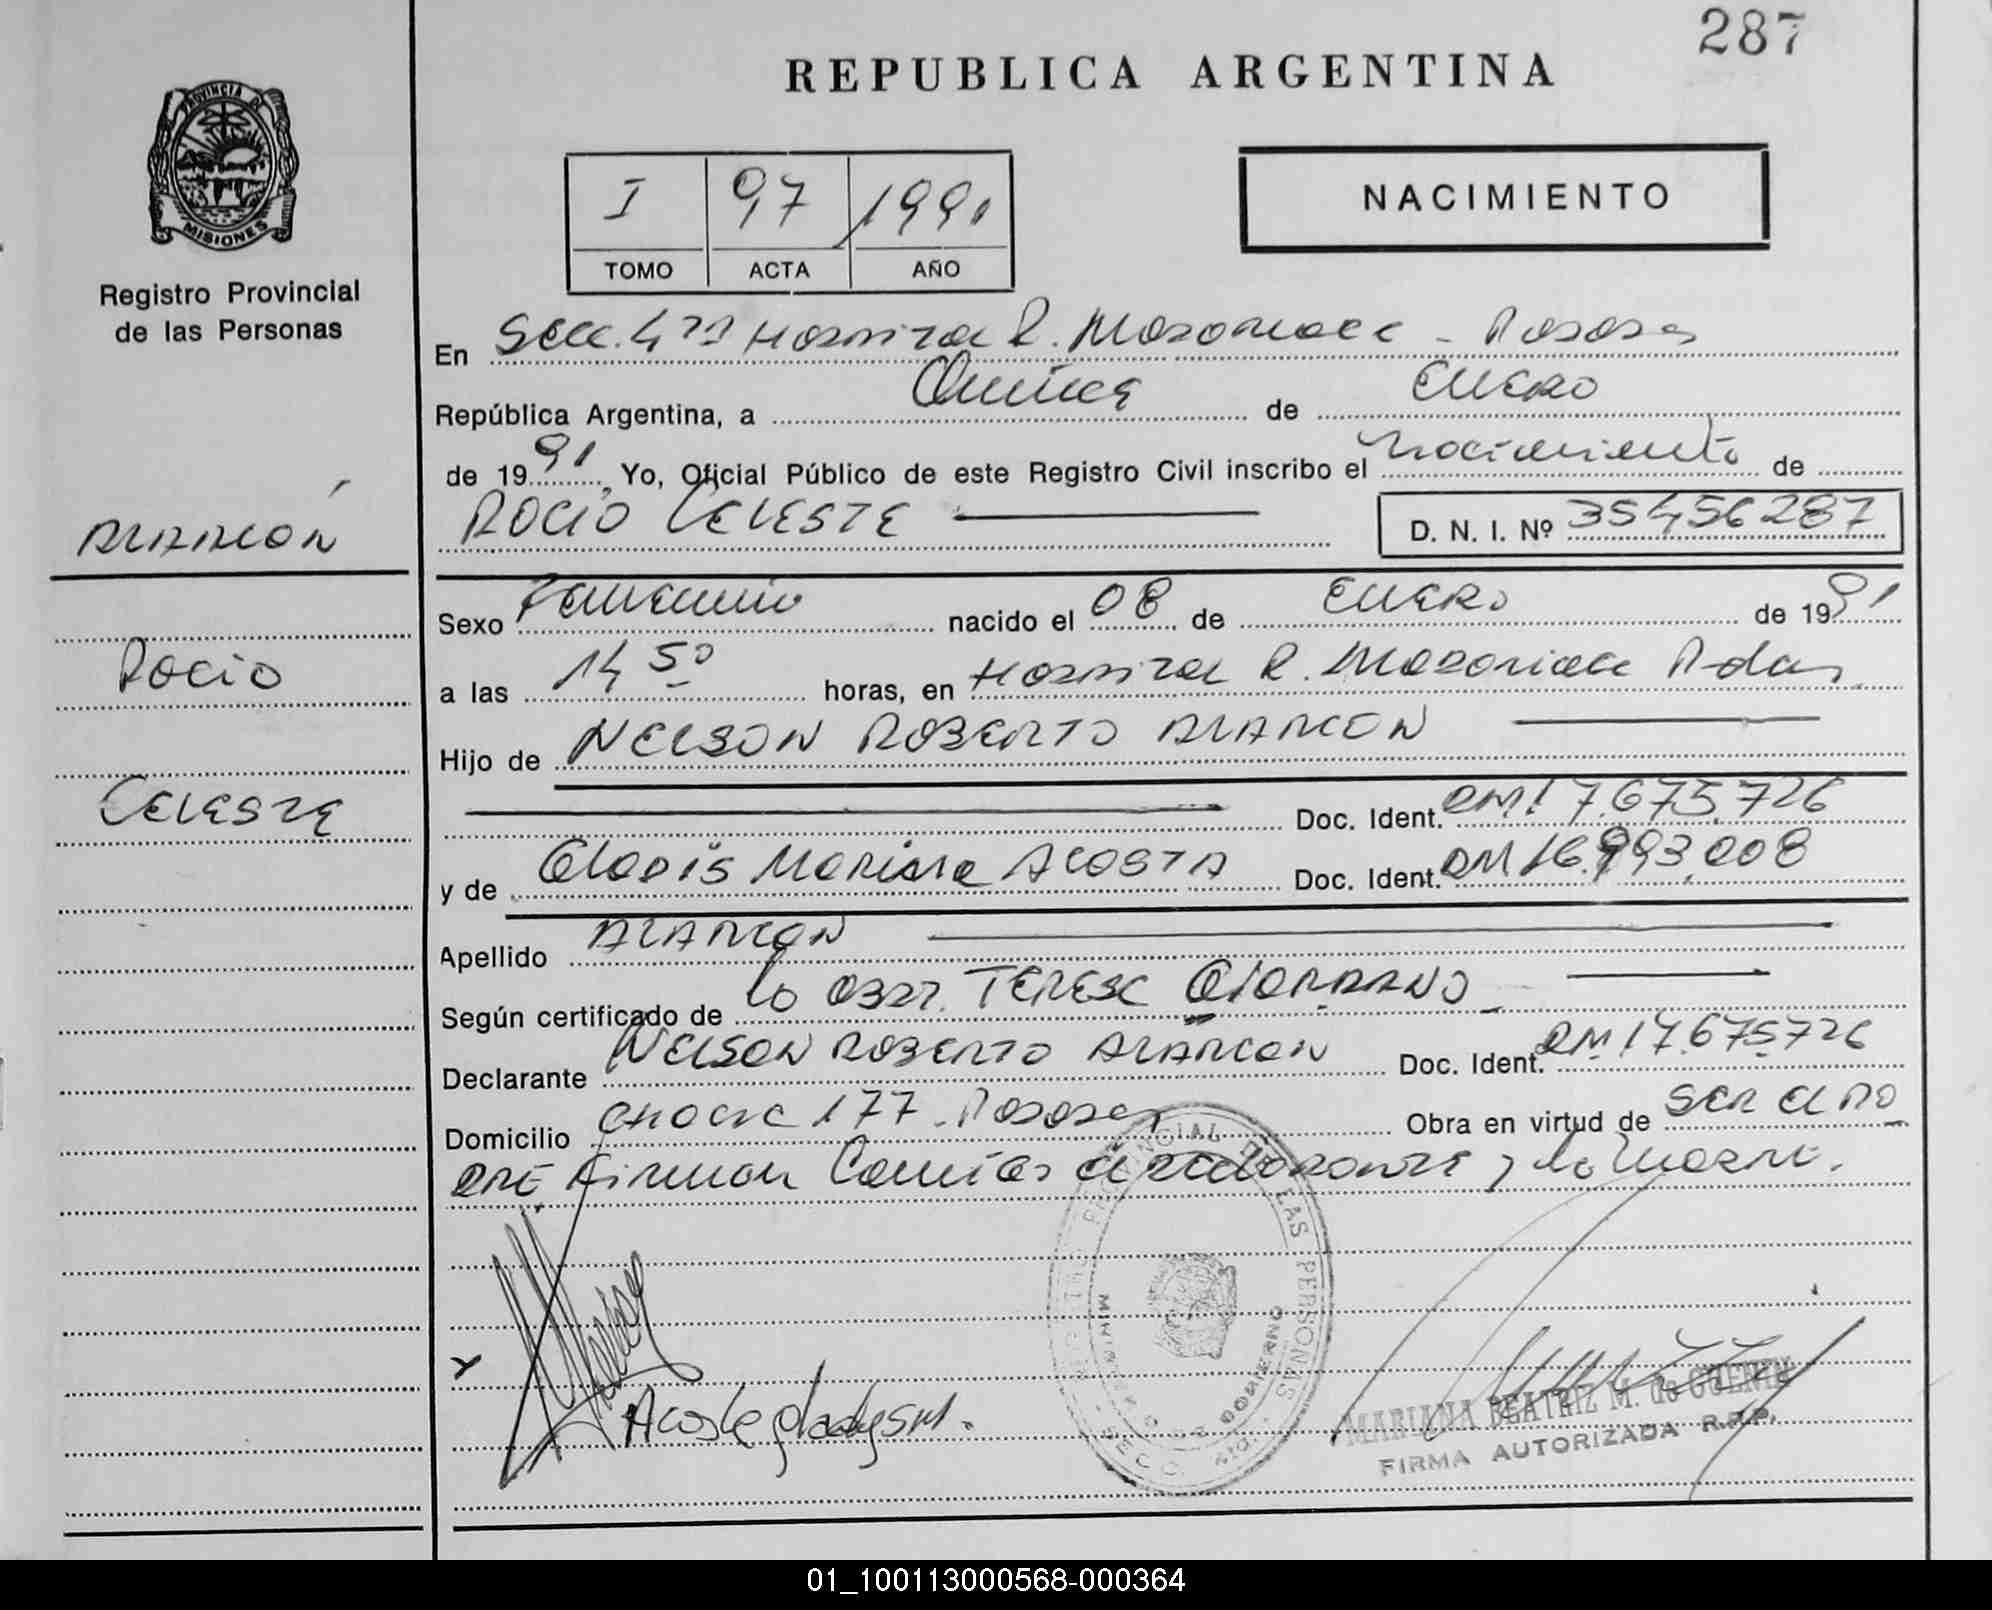 287
REPUBLICA ARGENTINA
PROVINCIA DE
MISIONES
Registro Provincial
de las Personas
I 97 1991
TOMO ACTA AÑO
NACIMIENTO
En Secc. 4ta Hospital R. Madariaga - Posadas
República Argentina, a Quince de Enero
de 1991, Yo, Oficial Público de este Registro Civil inscribo el nacimiento de
ROCIO CELESTE D. N. I. Nº 35456287
ALARCÓN
Rocio
CELESTE
Sexo Femenino nacido el 08 de ENERO de 1991
a las 14 50 horas, en Hospital R. Madariaga Pdas
Hijo de NELSON ROBERTO ALARCON
Doc. Ident. DNI 17.675.726
y de Gladis Mariana ACOSTA Doc. Ident. DNI 16.993.008
Apellido ALARCON
Según certificado de la Obst. TERESA GIORDANO
Declarante NELSON ROBERTO ALARCON Doc. Ident. DNI 17.675726
Domicilio 177 - Posadas Obra en virtud de SER el PA
DRE Firman Con el declarante y la madre.
Acosta gladys M.
REGISTRO PROVINCIAL DE LAS PERSONAS
MINISTERIO DE GOBIERNO
MARIANA BEATRIZ M. de GUERIN
FIRMA AUTORIZADA R.P.P.
01_100113000568-000364